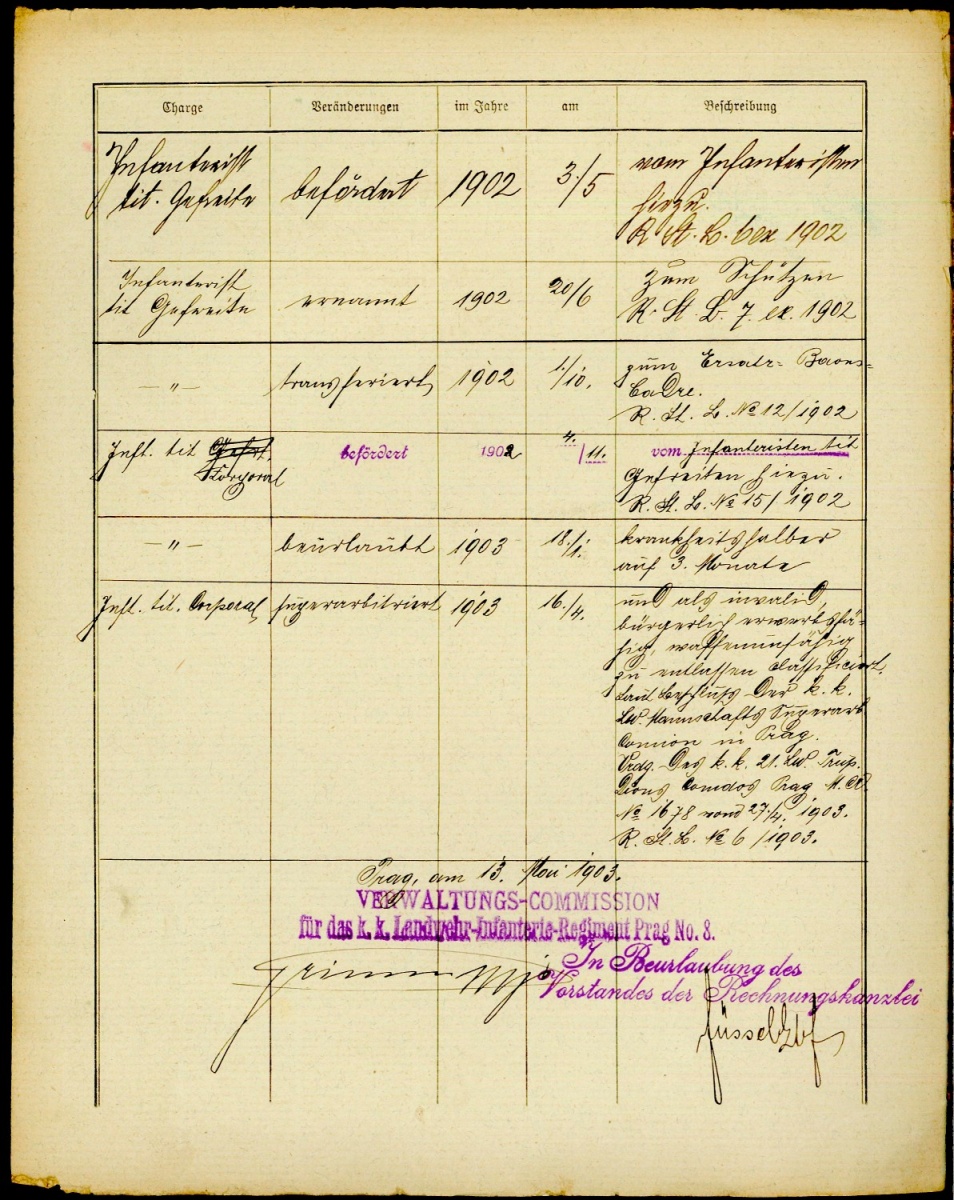 Charge Veränderungen im Jahre am Beschreibung
Infanterist
tit. Gefreite befördert 1902 3./5 vom Infanteristen
hiezu.
R. St. L. 6 ex 1902
Infanterist
tit Gefreite ernannt 1902 20/6 zum Schützen
R. St. L. 7. ex. 1902
—„— transferiert 1902 1./10. zum Ersatz- Baons-
Cadre.
R. St. L. No 12/1902
Inft. tit Gefrt. befördert 1902 4./11. vom Infanteristen tit
Corporal Gefreiten hiezu.
R. St. L. No 15/1902
—„— beurlaubt 1903 18./1. krankheitshalber
auf 3. Monate
Inft. tit. Corporal superarbitriert 1903 16./4. und als invalid,
bürgerlich erwerbsfä-
hig, waffenunfähig
zu entlassen classificiert.
Laut Beschluß der k. k.
Lw. Mannschafts Superarb
Comion in Prag.
Vrdg. des k. k. 21. Lw. Trup.
Dions Comdos Prag M. A.
No 1678 vom 27./4. 1903.
R. St. L. No 6/1903.
Prag, am 13. Mai 1903.
VERWALTUNGS-COMMISSION
für das k. k. Landwehr-Infanterie-Regiment Prag No. 8.
In Beurlaubung des
Mjr
Vorstandes der Rechnungskanzlei